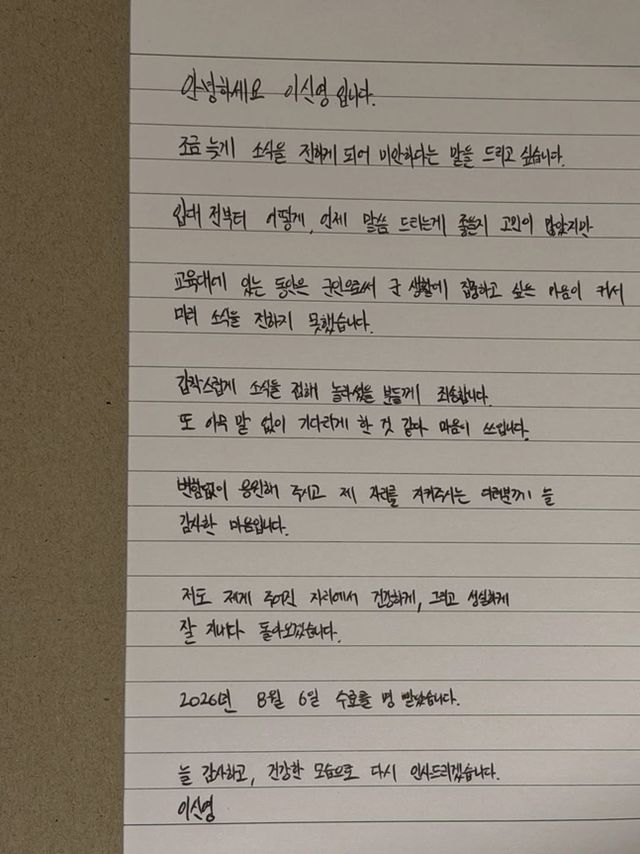 안녕하세요 이신영입니다.
조금 늦게 소식을 전하게 되어 미안하다는 말을 드리고 싶습니다.
입대 전부터 어떻게, 언제 말씀 드리는게 좋을지 고민이 많았지만
교육대에 있는 동안은 군인으로서 군 생활에 집중하고 싶은 마음이 커서
미리 소식을 전하지 못했습니다.
갑작스럽게 소식을 접해 놀라셨을 분들께 죄송합니다.
또 아무 말 없이 기다리게 한 것 같아 마음이 쓰입니다.
변함없이 응원해 주시고 제 자리를 지켜주시는 여러분께 늘
감사한 마음입니다.
저도 제게 주어진 자리에서 건강하게, 그리고 성실하게
잘 지내다 돌아오겠습니다.
2026년 8월 6일 수료를 명 받았습니다.
늘 감사하고, 건강한 모습으로 다시 인사드리겠습니다.
이신영